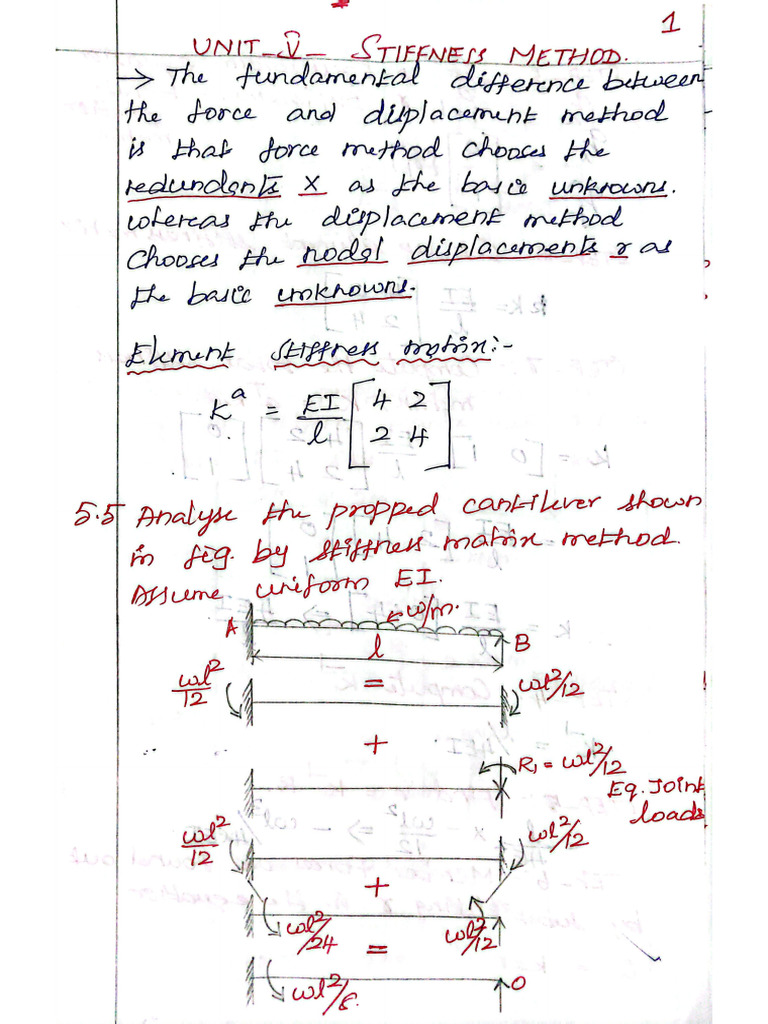 1
UNIT-V- STIFFNESS METHOD.
→ The fundamental difference between
the force and displacement method
is that force method chooses the
redundants X as the basic unknowns.
whereas the displacement method
chooses the nodal displacements r as
the basic unknowns.
Element stiffness matrix:-
k^a = EI/l [4 2
2 4]
5.5 Analyse the propped cantilever shown
in fig. by stiffness matrix method.
Assume uniform EI.
w/m.
A B
l
wl²/12 = wl²/12
+
R₁ = wl²/12
Eq. Joint
loads
wl²/12 wl²/12
+
wl²/24 wl²/12
=
wl²/8 0